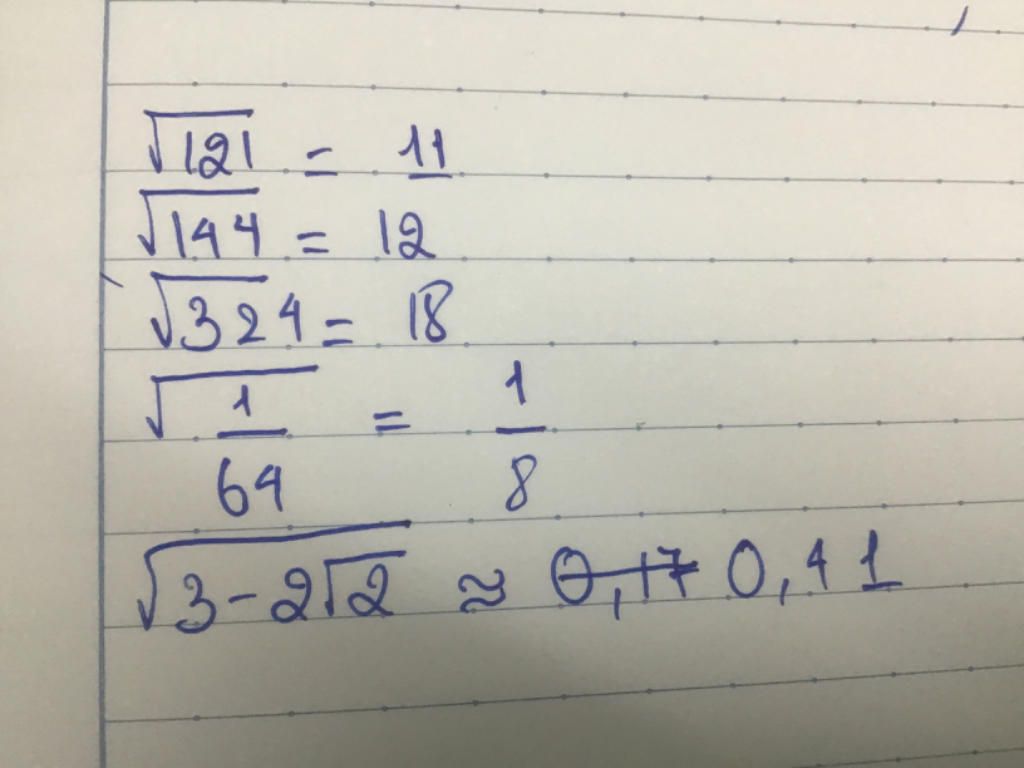 √121 = 11
√144 = 12
√324 = 18
√1/64 = 1/8
√3-2√2 ≈ 0,17 0,41